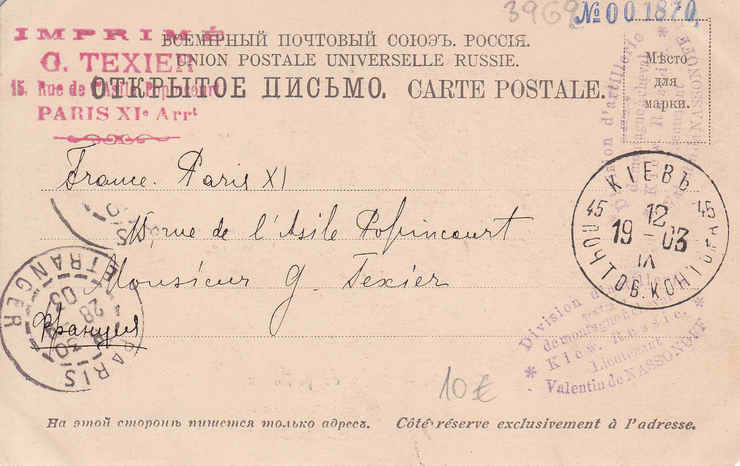 3969
№ 001870,
IMPRIMÉ
G. TEXIER
15, Rue de l'Asile Popincourt
PARIS XIe Arrt
ВСЕМІРНЫЙ ПОЧТОВЫЙ СОЮЗЪ. РОССІЯ.
UNION POSTALE UNIVERSELLE RUSSIE.
ОТКРЫТОЕ ПИСЬМО. CARTE POSTALE.
Мѣсто
для
марки.
France. Paris XI
15, rue de l'Asile Popincourt
Monsieur G. Texier
Франция
КІЕВЪ
45 12 45
19-03
IX
ПОЧТОВ. КОНТОРА
PARIS
ETRANGER
28
03
Division d'artillerie
Kiew. Russie.
Lieutenant
Valentin de NASSONOFF
10€
На этой сторонѣ пишется только адресъ. Côté réservé exclusivement à l'adresse.